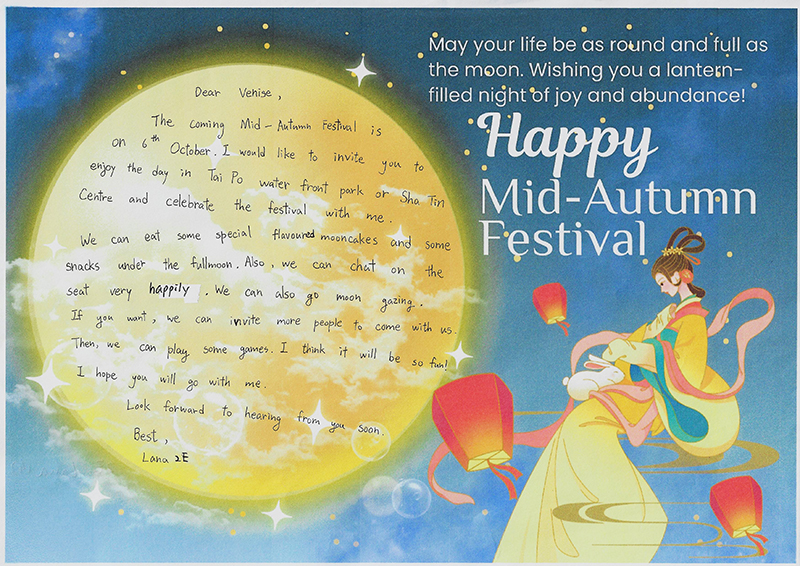 May your life be as round and full as
the moon. Wishing you a lantern-
filled night of joy and abundance!
Happy
Mid-Autumn
Festival
Dear Venise,
The coming Mid-Autumn Festival is
on 6th October. I would like to invite you to
enjoy the day in Tai Po water front park or Sha Tin
Centre and celebrate the festival with me.
We can eat some special flavoured mooncakes and some
snacks under the fullmoon. Also, we can chat on the
seat very happily. We can also go moon gazing.
If you want, we can invite more people to come with us.
Then, we can play some games. I think it will be so fun!
I hope you will go with me.
Look forward to hearing from you soon.
Best,
Lana 2E